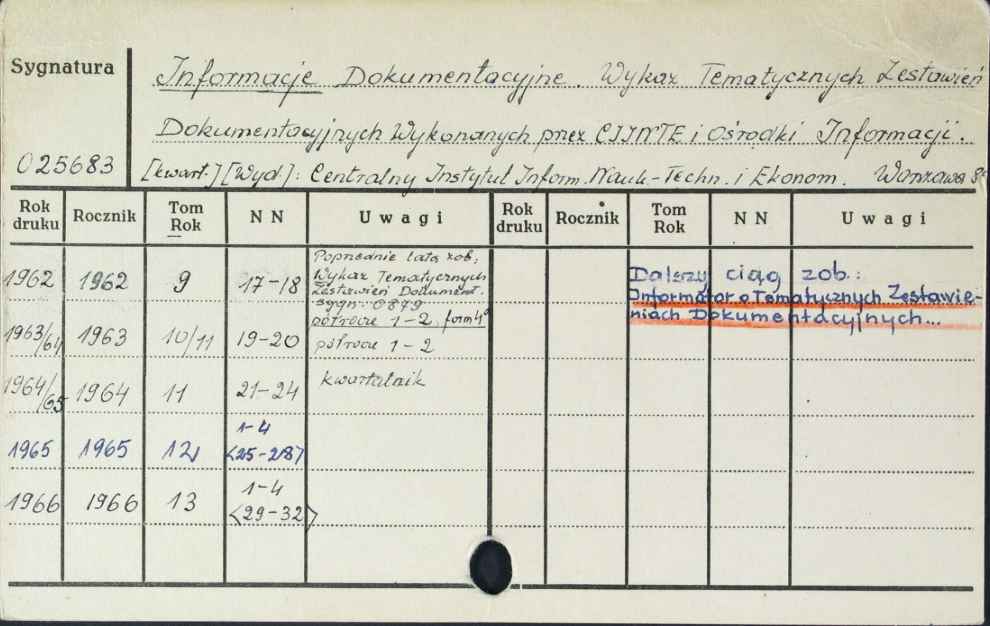 Sygnatura
Informacje Dokumentacyjne. Wykaz Tematycznych Zestawień
Dokumentacyjnych Wykonanych przez CIINTE i Ośrodki Informacji.
025683 [kwart.] [Wyd]: Centralny Instytut Inform. Nauk.-Techn. i Ekonom. Warszawa
Rok druku Rocznik Tom Rok NN Uwagi Rok druku Rocznik Tom Rok NN Uwagi
1962 1962 9 17-18 Poprzednie lata zob.:
Wykaz Tematycznych
Zestawień Dokument.
sygn. 0879
półrocze 1-2, form 4°
1963/64 1963 10/11 19-20 półrocze 1-2
1964/65 1964 11 21-24 kwartalnik
1965 1965 12 1-4
<25-28>
1966 1966 13 1-4
<29-32>
Dalszy ciąg zob.:
Informator o Tematycznych Zestawie-
niach Dokumentacyjnych...